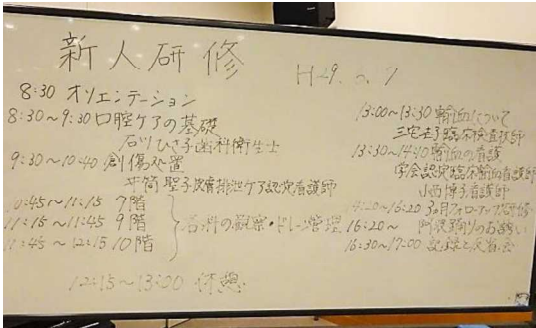 新人研修
H29.
8:30 オリエンテーション
8:30~9:30 口腔ケアの基礎
石川ひさ子歯科衛生士
9:30~10:40 創傷処置
井筒聖子皮膚排泄ケア認定看護師
10:45~11:15 7階
11:15~11:45 9階
11:45~12:15 10階
各科の観察・ドレーン管理
12:15~13:00 休憩
13:00~13:30 輸血について
臨床検査技師
13:30~14:10 輸血の看護
学会認定臨床輸血看護師
小西博子看護師
~16:20 3ヵ月フォローアップ研修
16:20~ 阿波踊りのお誘い
16:30~17:00